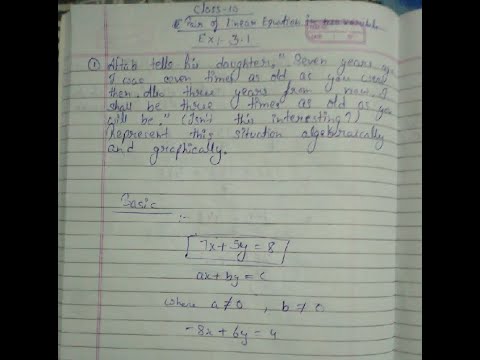 Class-10
Pair of linear Equation in two variable
Ex:- 3.1
① Aftab tells his daughter, "Seven years ago,
I was seven times as old as you were
then. Also three years from now, I
shall be three times as old as you
will be." (Isn't this interesting?)
Represent this situation algebraically
and graphically.
Basic :-
7x + 5y = 8
ax + by = c
where a ≠ 0 , b ≠ 0
-8x + 6y = 4